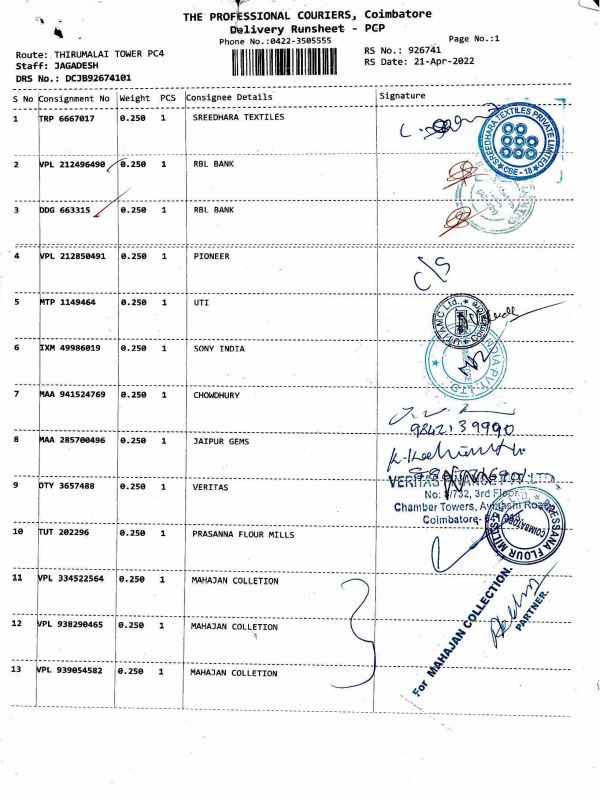 THE PROFESSIONAL COURIERS, Coimbatore
Delivery Runsheet - PCP
Phone No.:0422-3505555
Page No.:1
Route: THIRUMALAI TOWER PC4
RS No.: 926741
Staff: JAGADESH
RS Date: 21-Apr-2022
DRS No.: DCJB92674101
S No Consignment No Weight PCS Consignee Details Signature
1 TRP 6667017 0.250 1 SREEDHARA TEXTILES
SREEDHARA TEXTILES PRIVATE LIMITED
CBE - 18
2 VPL 212496490 0.250 1 RBL BANK
3 DDG 663315 0.250 1 RBL BANK
4 VPL 212850491 0.250 1 PIONEER
C/S
5 MTP 1149464 0.250 1 UTI
UTI AMC Ltd., Coimbatore
6 IXM 49986019 0.250 1 SONY INDIA
7 MAA 941524769 0.250 1 CHOWDHURY
9842139990
8 MAA 285700496 0.250 1 JAIPUR GEMS
9 DTY 3657488 0.250 1 VERITAS
VERITAS LTD.
3rd Floor
Chamber Towers, Road
Coimbatore-
10 TUT 202296 0.250 1 PRASANNA FLOUR MILLS
FLOUR MILLS
COIMBATORE
11 VPL 334522564 0.250 1 MAHAJAN COLLETION
12 VPL 938290465 0.250 1 MAHAJAN COLLETION
13 VPL 939054582 0.250 1 MAHAJAN COLLETION
For MAHAJAN COLLECTION.
PARTNER.